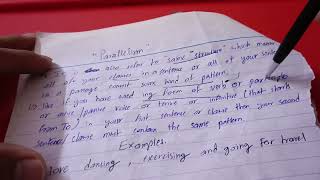 "Parallelism"
also refer to same "structure" which means
all of your clauses in a sentence or all of your
in a passage same kind of pattern.
like if you have used ing form of verb or
or active/passive voice or tense or infinitive (that starts
from To) in your first sentence or clause then your second
sentence/clause must contain the same pattern.
Examples.
love dancing, exercising and going for travel